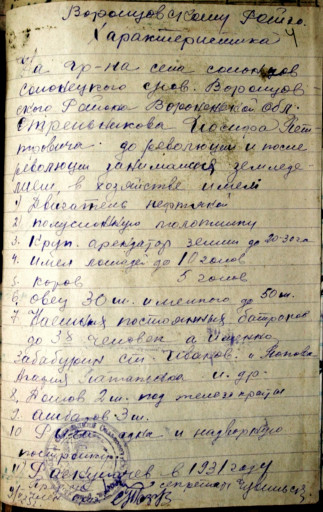 Воронцовскому Району
Характеристика
На гр-на села солонцов
солонецкого сров. Воронцов-
ского Района Воронежской обл.
Стрельникова Исидора Пет
тровича. до революции и после
революции занимался земледе-
лием, в хозяйстве имел
1) Двигатель нефтяной
2. полусложную молотилку
3. Круп. арендатор земли до 20-30 га
4. имел лошадей до 10 голов
5. коров 5 голов
6. овец 30 ш. и много до 50 ш.
7. Наемных постоянных батраков
до 3х человек а
Забабурин Иванов. и Попова
и др.
8. Домов 2 ш. под железо крыты
9. амбаров 3 ш.
10 и надворную
постройку
11) Раскулачен в 1931 году